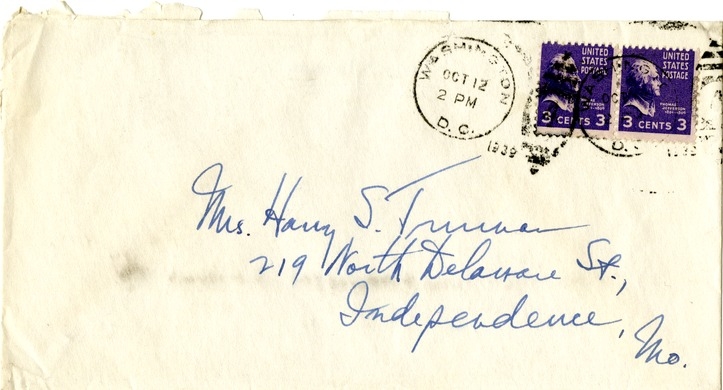 WASHINGTON
OCT 12
2 PM
D. C.
1939
UNITED
STATES
POSTAGE
3 CENTS 3
UNITED
STATES
POSTAGE
THOMAS
JEFFERSON
3 CENTS 3
Mrs. Harry S. Truman
219 North Delaware St.,
Independence,
Mo.